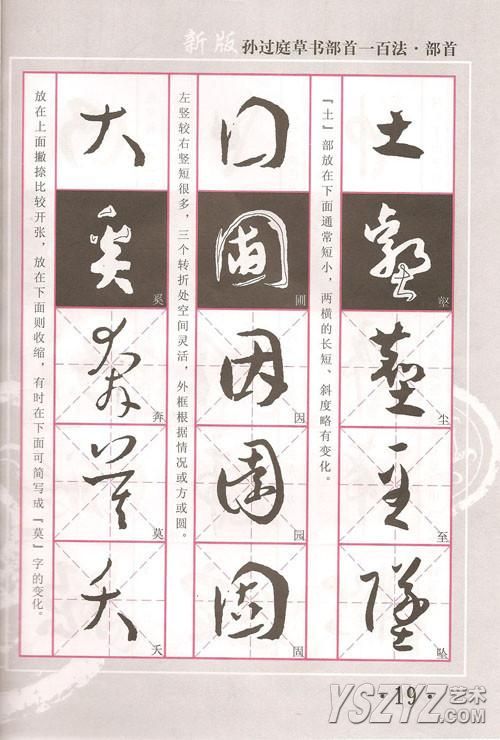 新版 孙过庭草书部首一百法·部首
土
壑
尘
至
坠
『土』部放在下面通常短小，两横的长短、斜度略有变化。
囗
圃
因
园
固
左竖较右竖短很多，三个转折处空间灵活，外框根据情况或方或圆。
大
奚
奔
莫
夭
放在上面撇捺比较开张，放在下面则收缩，有时在下面可简写成『莫』字的变化。
·19·
YSZYZ艺术
.COM